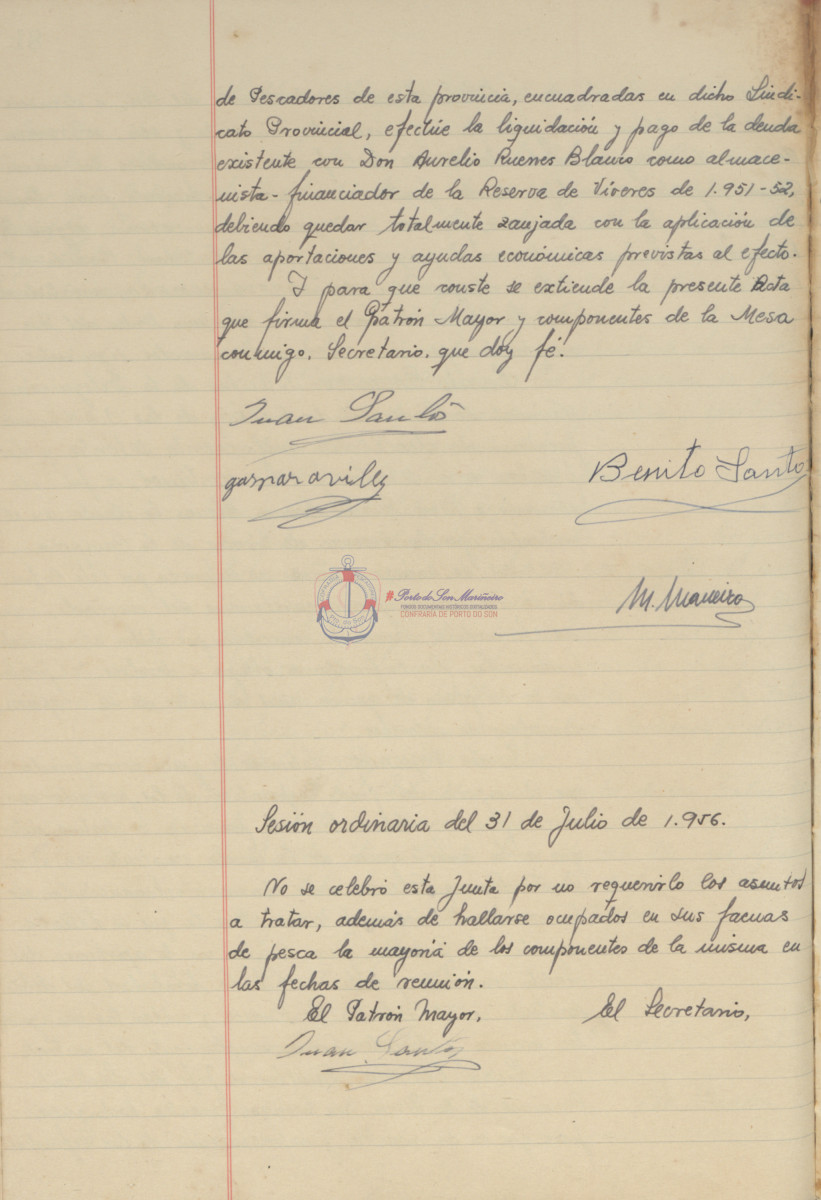 de Pescadores de esta provincia, encuadradas en dicho Sindi-
cato Provincial, efectúe la liquidación y pago de la deuda
existente con Don Aurelio Ruenes Blanco como almace-
nista-financiador de la Reserva de Víveres de 1.951-52,
debiendo quedar totalmente zanjada con la aplicación de
las aportaciones y ayudas económicas previstas al efecto.
Y para que conste se extiende la presente Acta
que firma el Patrón Mayor y componentes de la Mesa
conmigo, Secretario, que doy fé.
Juan Santos
gaspar avilés
Benito Santo
#Porto do Son Mariñeiro
FONDOS DOCUMENTAIS HISTÓRICOS DIXITALIZADOS
CONFRARÍA DE PORTO DO SON
M. Maneiro
Sesión ordinaria del 31 de Julio de 1.956.
No se celebró esta Junta por no requerirlo los asuntos
a tratar, además de hallarse ocupados en sus faenas
de pesca la mayoría de los componentes de la misma en
las fechas de reunión.
El Patrón Mayor,
El Secretario,
Juan Santos